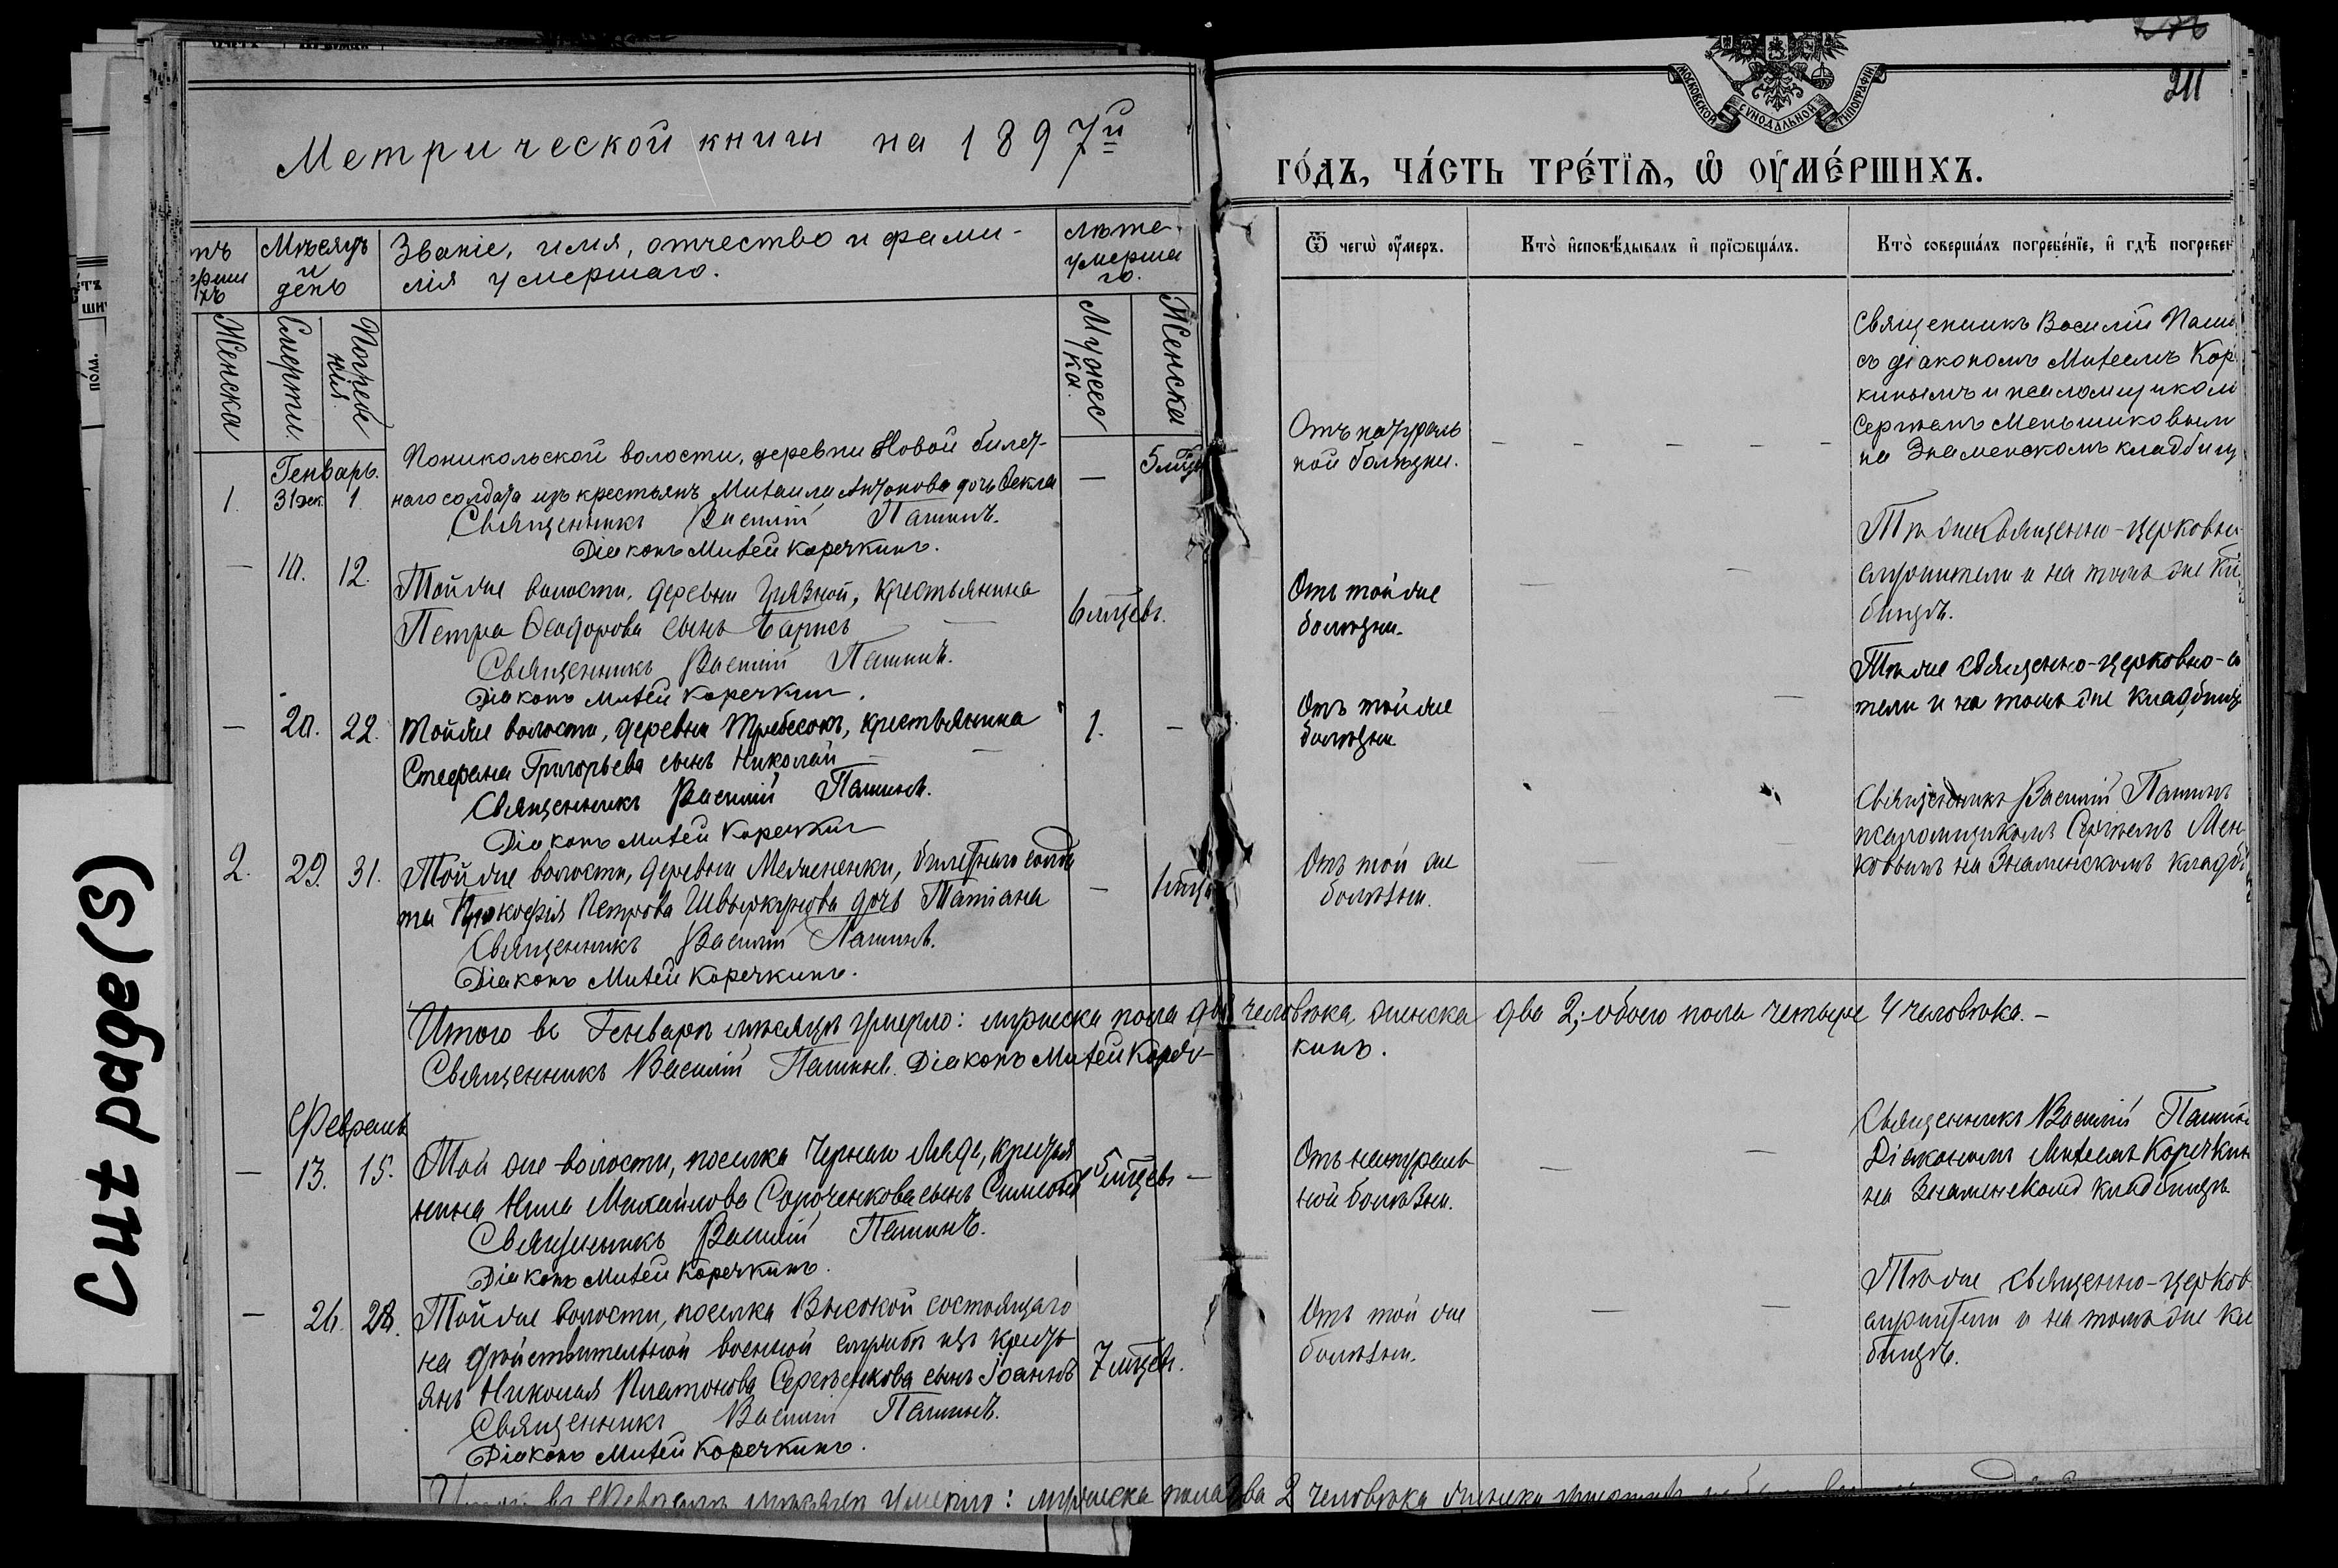 211
МОСКОВСКОЙ СѴНОДАЛЬНОЙ ТИПОГРАФІИ
Метрической книги на 1897й
го́дъ, ча́сть тре́тїѧ, ѡ҆ ѹ҆ме́ршихъ.
Мѣсяцъ и день
Званіе, имя, отчество и фами-
лія умершаго.
лѣта умерша
го.
Женска
Смерти.
Погребе
нія.
Мужес
ка
Женска
Ѿ чегѡ̀ ѹ҆́меръ.
Кто̀ и҆сповѣ́дывалъ и҆ прїѡбща́лъ.
Кто̀ соверша́лъ погребе́нїе, и҆ гдѣ̀ погребен
Генварь.
1. 31 дек. 1
Поникольской волости, деревни Новой билет-
наго солдата изъ крестьянъ Михаила Антонова дочь Ѳекла
Священникъ Василій Пашинъ.
Діаконъ Михей Коречкинъ.
— 5 мцев
Отъ натураль
ной болѣзни.
Священникъ Василій Паши
съ діакономъ Михеемъ Кор
кинымъ и псаломщиком
Сергѣемъ Меньшиковым
на Знаменскомъ кладбищ
— 10. 12.
Той же волости, деревни Грязной, крестьянина
Петра Ѳеодорова сынъ Борисъ
Священникъ Василій Пашинъ.
Діаконъ Михей Коречкинъ.
6 мцевъ.
Отъ той же
болѣзни.
Тѣ же священно-церковно-
служители и на томъ же кл
бищѣ.
— 20. 22.
Той же волости, деревни крестьянина
Стефана Григорьева сынъ Николай
Священникъ Василій Пашинъ.
Діаконъ Михей Коречкин
1. —
Отъ той же
болѣзни
Тѣ же священно-церковно-с
тели и на томъ же кладбищ
2. 29. 31.
Той же волости, деревни билетнаго солда
та Прокофія Петрова дочь Татіана
Священникъ Василій Пашинъ.
Діаконъ Михей Коречкинъ.
—
Отъ той же
болѣзни.
Священникъ Василій Пашинъ
псаломщикомъ Сергѣемъ Мен
ковымъ на Знаменскомъ кладб
Итого въ Генварѣ мѣсяцѣ умерло: мужеска пола два человѣка, женска два 2; обоего пола четыре 4 человѣка. —
Священникъ Василій Пашинъ. Діаконъ Михей Кореч-
кинъ.
Февраль
— 13. 15.
Той же волости, поселка Чернаго крестья
нина Нила Михайлова Сороченкова сынъ Симеонъ
Священникъ Василій Пашинъ.
Діаконъ Михей Коречкинъ.
5 мцевъ —
Отъ натураль
ной болѣзни.
Священникъ Василій Пашин
Діакономъ Михеемъ Коречкин
на Знаменскомъ кладбищѣ
— 26. 28.
Той же волости, поселка Высокой состоящаго
на дѣйствительной военной службѣ изъ кресть
янъ Николая Платонова Сергѣенкова сынъ Іоаннъ
Священникъ Василій Пашинъ.
Діаконъ Михей Коречкинъ.
7 мцевъ.
Отъ той же
болѣзни.
Тѣ же священно-церков
служители и на томъ же кла
бищѣ.
Итого въ Февралѣ мѣсяцѣ умерло: мужеска пола два 2 человѣка женска
Cut page(s)